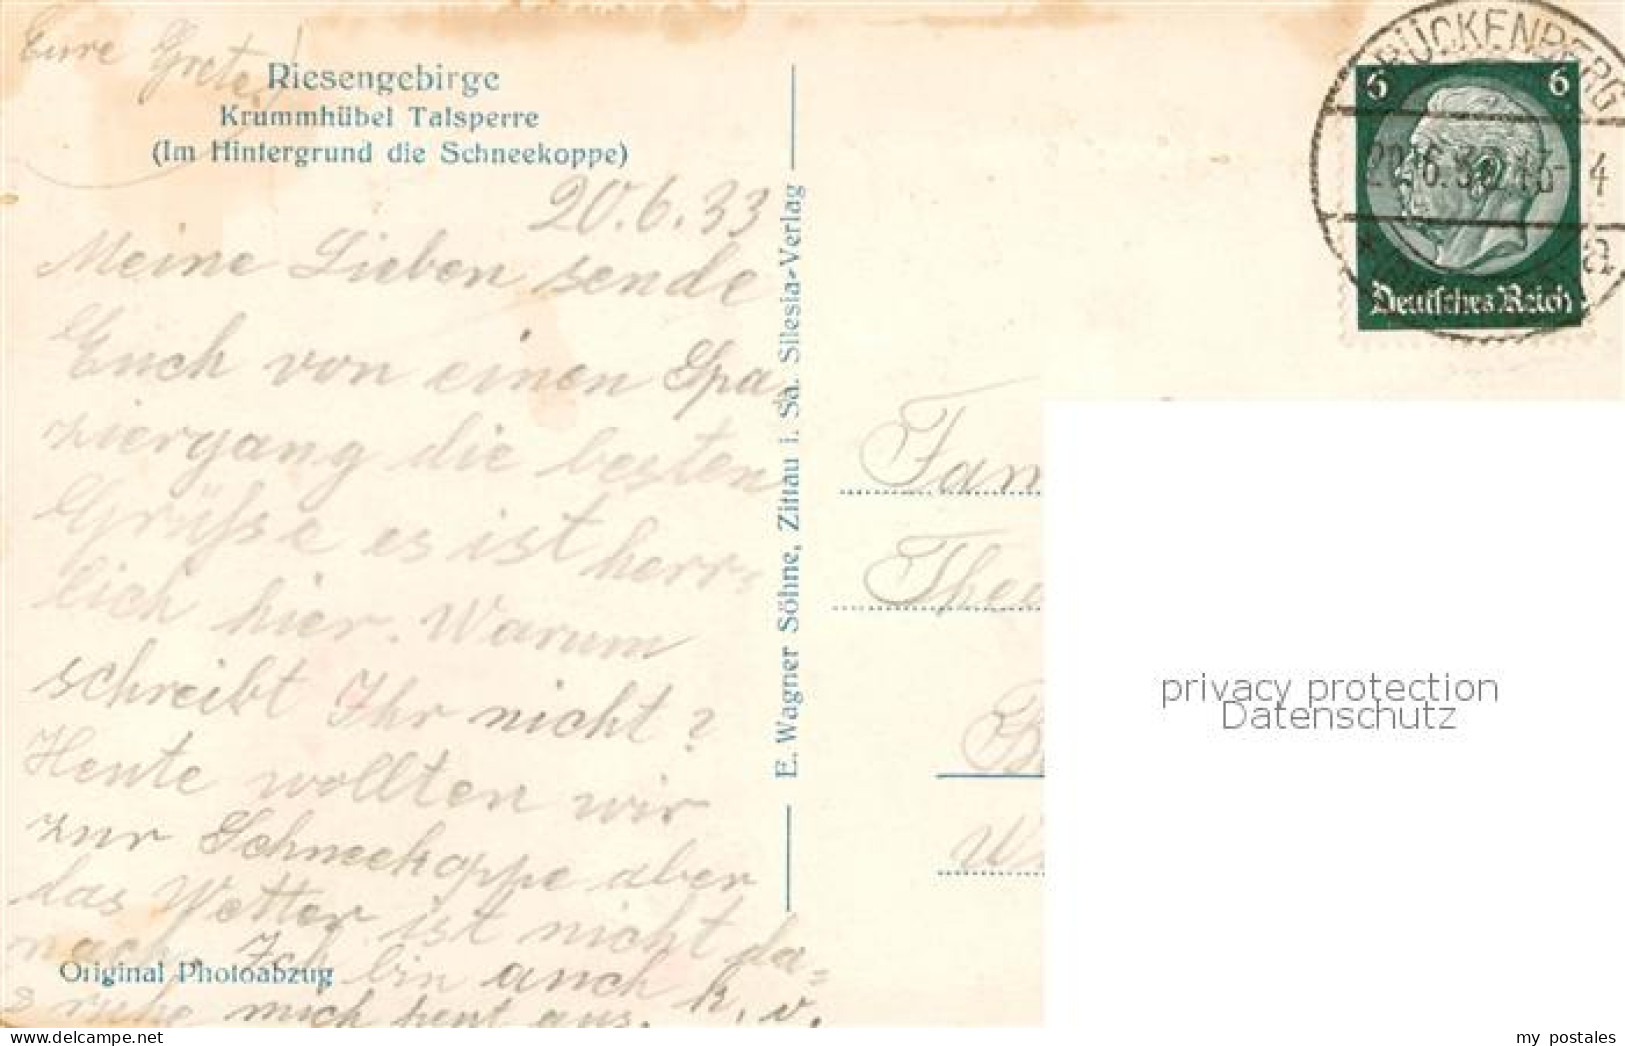 Eure Grete!
Riesengebirge
Krummhübel Talsperre
(Im Hintergrund die Schneekoppe)
20.6.33
Meine Lieben sende
Euch von einen Spa-
ziergang die besten
Grüße es ist herr-
lich hier. Warum
schreibt Ihr nicht?
Heute wollten wir
zur Schneekoppe aber
das Wetter ist nicht da-
nach. Ich bin auch k. v.
ruhe mich heut aus.
Original Photoabzug
E. Wagner Söhne, Zittau i. Sa. Silesia-Verlag
BRÜCKENBERG
4
a
6 6
Deutsches Reich
Fam
Theo
privacy protection
Datenschutz
my postales